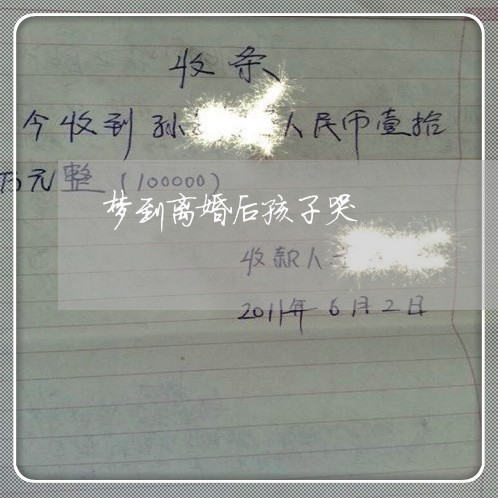 收条
今收到孙 人民币壹拾
万元整(100000)
梦到离婚后孩子哭
收款人
2011年6月2日